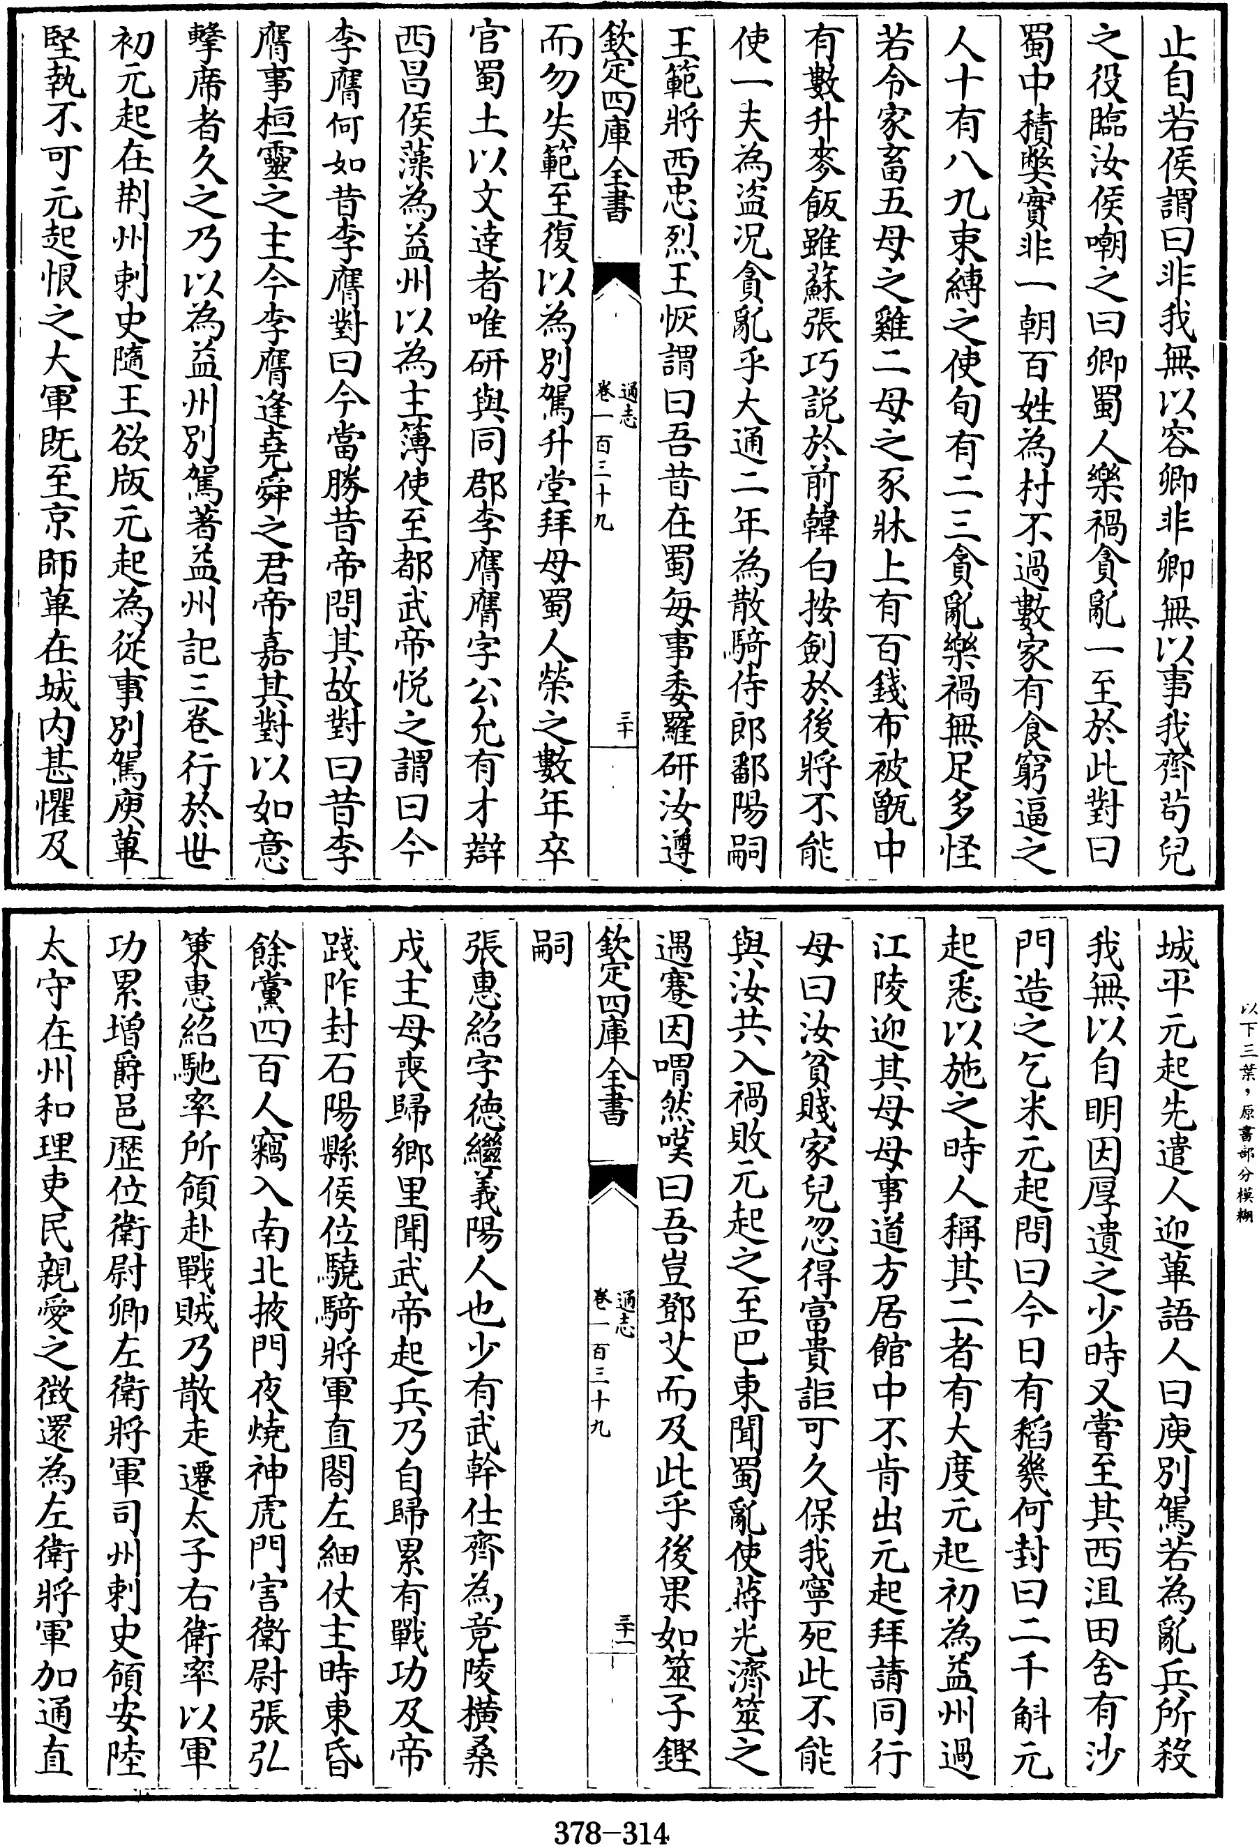 止自若侯謂曰非我無以容卿非卿無以事我齊苟兒
之役臨汝侯嘲之曰卿蜀人樂禍貪亂一至於此對曰
蜀中積弊實非一朝百姓為村不過數家有食窮逼之
人十有八九束縛之使旬有二三貪亂樂禍無足多怪
若令家畜五母之雞二母之豕牀上有百錢布被甑中
有數升麥飯雖蘇張巧說於前韓白按劍於後將不能
使一夫為盜況貪亂乎大通二年為散騎侍郎鄱陽嗣
王範將西忠烈王恢謂曰吾昔在蜀每事委羅研汝遵
欽定四庫全書
通志
卷一百三十九
三十
而勿失範至復以為別駕升堂拜母蜀人榮之數年卒
官蜀土以文達者唯研與同郡李膺膺字公允有才辯
西昌侯藻為益州以為主簿使至都武帝悅之謂曰今
李膺何如昔李膺對曰今當勝昔帝問其故對曰昔李
膺事桓靈之主今李膺逢堯舜之君帝嘉其對以如意
擊席者久之乃以為益州別駕著益州記三卷行於世
初元起在荆州刺史隨王欲版元起為從事別駕庾蓽
堅執不可元起恨之大軍既至京師蓽在城内甚懼及
城平元起先遣人迎蓽語人曰庾別駕若為亂兵所殺
我無以自明因厚遺之少時又嘗至其西沮田舍有沙
門造之乞米元起問曰今日有稻幾何封曰二千斛元
起悉以施之時人稱其二者有大度元起初為益州過
江陵迎其母母事道方居館中不肯出元起拜請同行
母曰汝貧賤家兒忽得富貴詎可久保我寧死此不能
與汝共入禍敗元起之至巴東聞蜀亂使蔣光濟筮之
遇蹇因喟然嘆曰吾豈鄧艾而及此乎後果如筮子鏗
欽定四庫全書
通志
卷一百三十九
三十一
嗣
張惠紹字德繼義陽人也少有武幹仕齊為竟陵橫桑
戍主母喪歸鄉里聞武帝起兵乃自歸累有戰功及帝
踐阼封石陽縣侯位驍騎將軍直閤左細仗主時東昏
餘黨四百人竊入南北掖門夜燒神虎門害衛尉張弘
䇿惠紹馳率所領赴戰賊乃散走遷太子右衛率以軍
功累增爵邑歷位衛尉卿左衛將軍司州刺史領安陸
太守在州和理吏民親愛之徵還為左衛將軍加通直
以下三葉，原書部分模糊
378-314